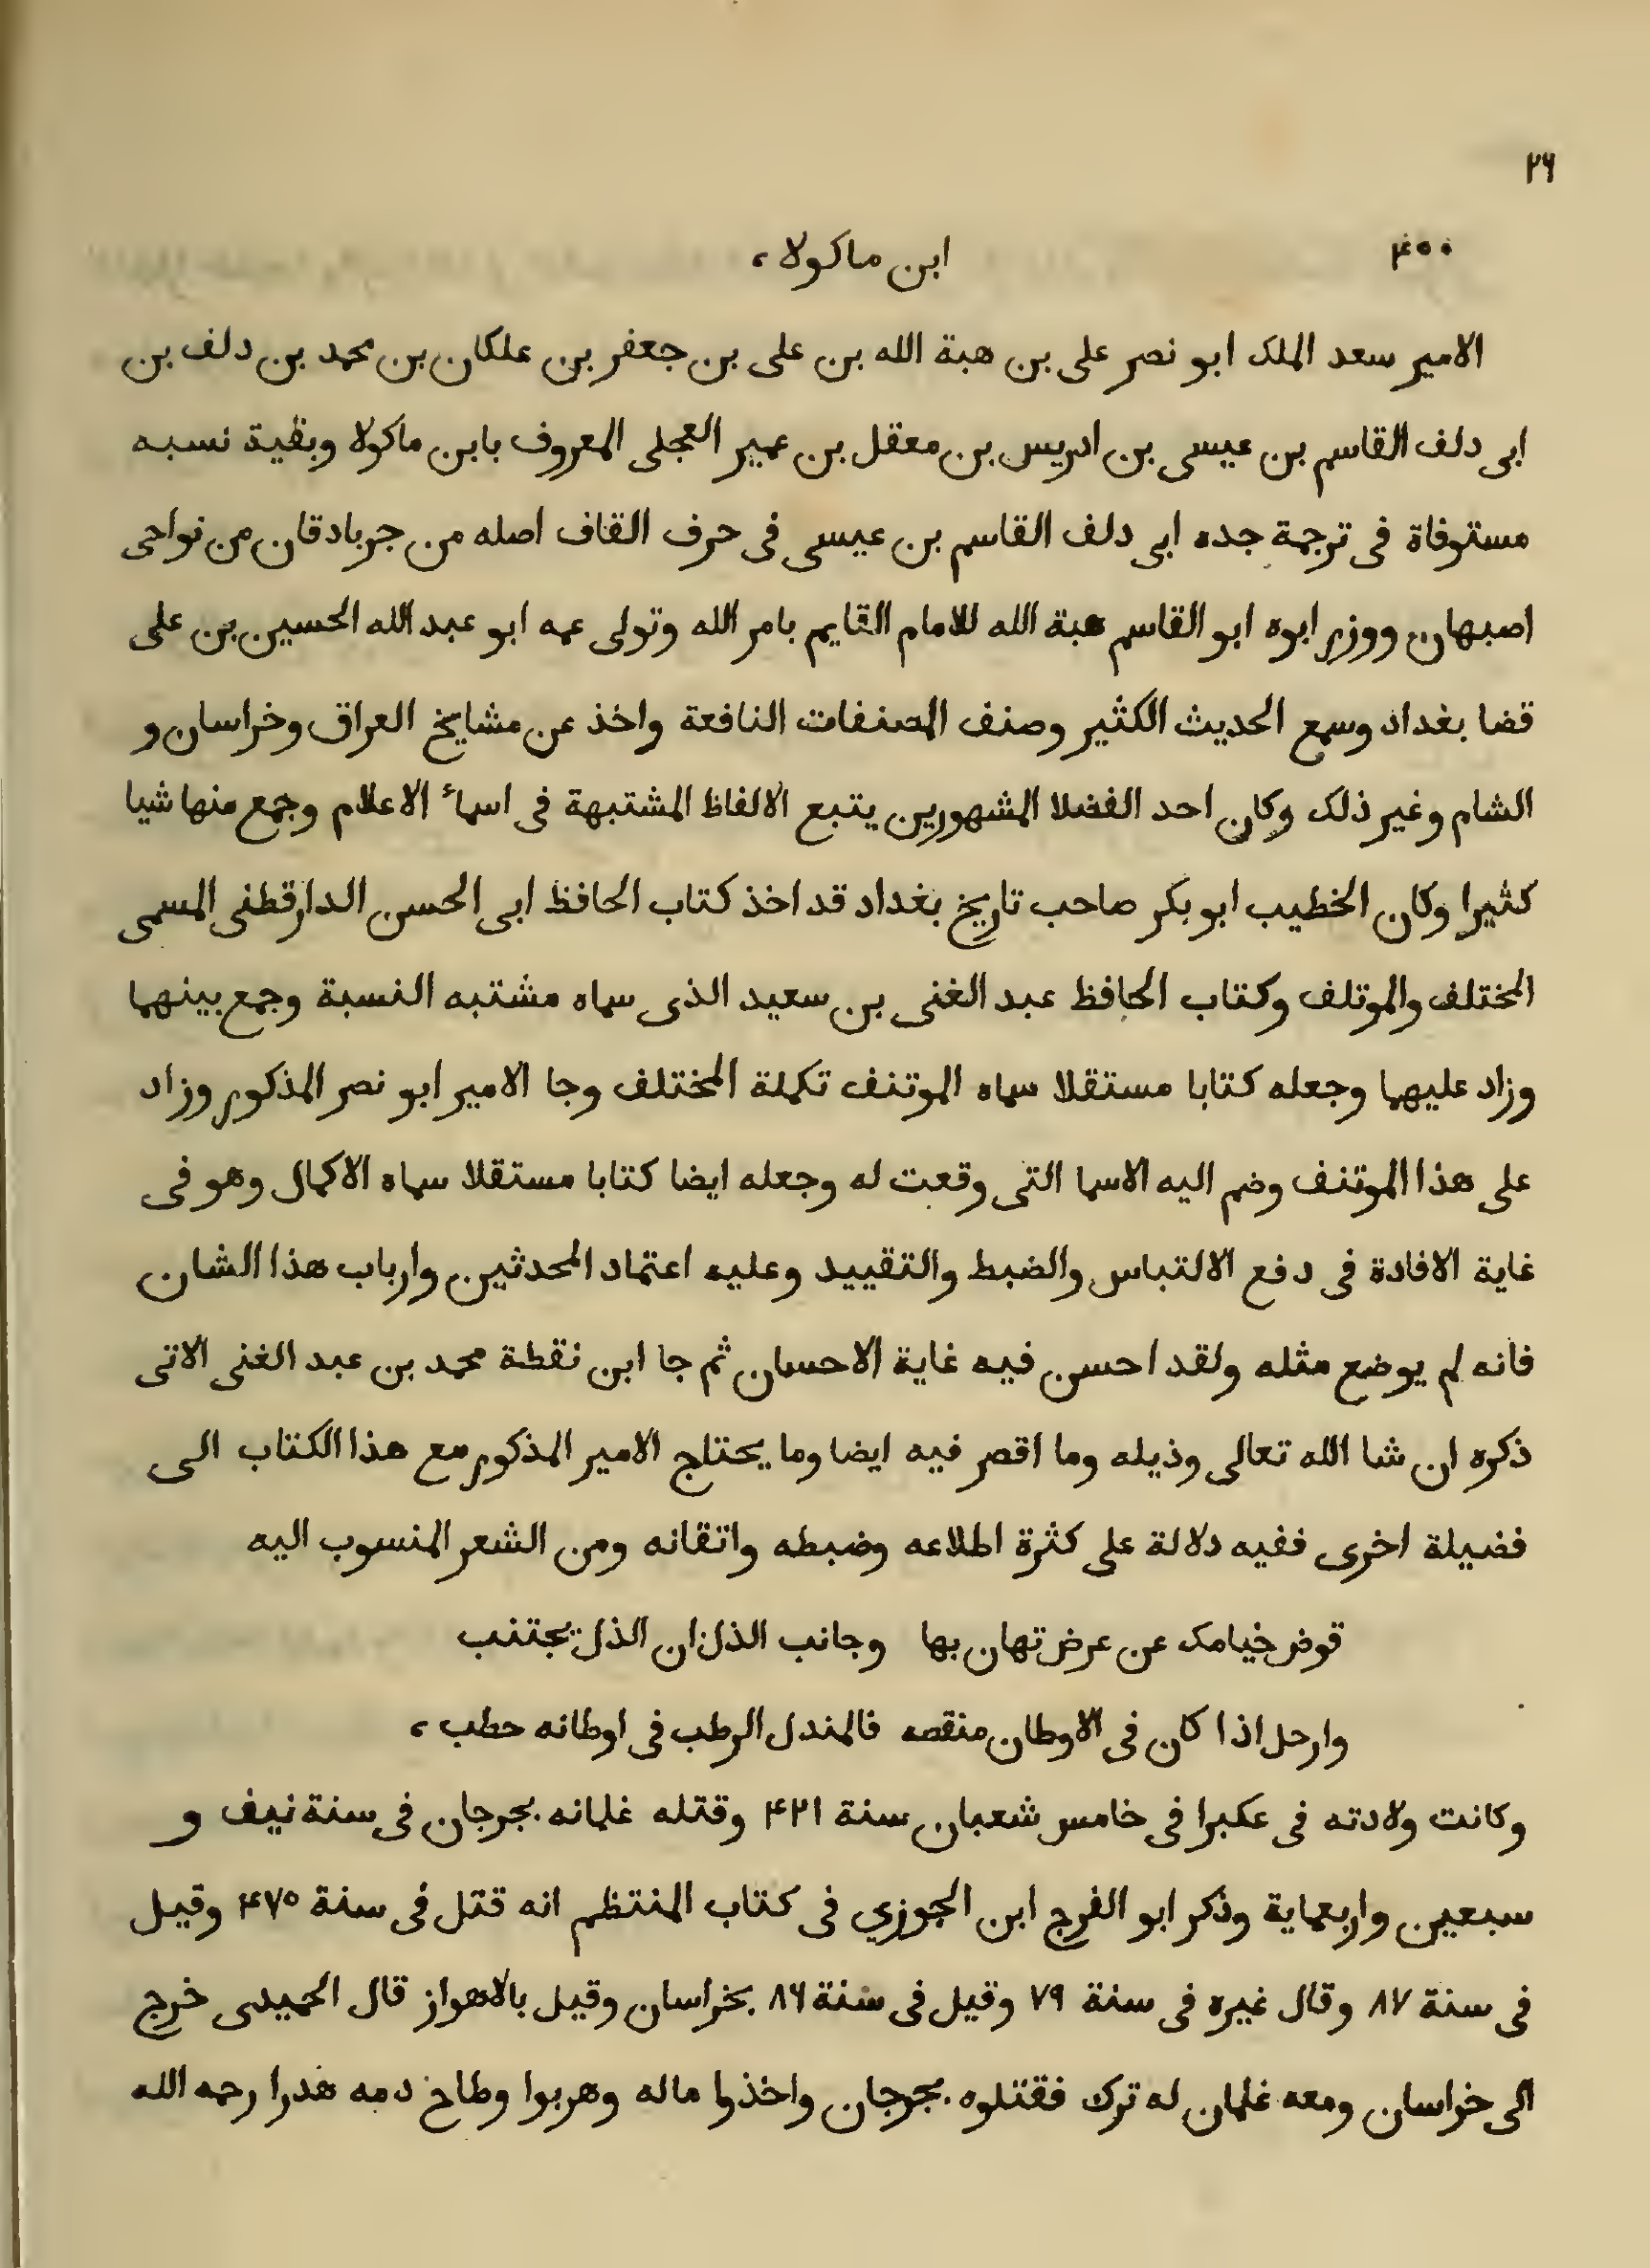 ٢٦
٤٥٠ ابن ماكولا ،
الامير سعد الملك ابو نصر على بن هبة الله بن على بن جعفر بن علكان بن محمد بن دلف بن
ابى دلف القاسم بن عيسى بن ادريس بن معقل بن عمير العجلى المعروف بابن ماكولا وبقية نسبه
مستوفاة فى ترجمة جده ابى دلف القاسم بن عيسى فى حرف القاف اصله من جرباذقان من نواحى
اصبهان ووزر ابوه ابو القاسم هبة الله للامام القايم بامر الله وتولى عمه ابو عبد الله الحسين بن على
قضا بغداد وسمع الحديث الكثير وصنف المصنفات النافعة واخذ عن مشايخ العراق وخراسان و
الشام وغير ذلك وكان احد الفضلا المشهورين يتبع الالفاظ المشتبهة فى اسماء الاعلام وجمع منها شيا
كثيرا وكان الخطيب ابو بكر صاحب تاريخ بغداد قد اخذ كتاب الحافظ ابى الحسن الدارقطنى المسمى
المختلف والموتلف وكتاب الحافظ عبد الغنى بن سعيد الذى سماه مشتبه النسبة وجمع بينهما
وزاد عليهما وجعله كتابا مستقلا سماه الموتنف تكملة المختلف وجا الامير ابو نصر المذكور وزاد
على هذا الموتنف وضم اليه الاسما التى وقعت له وجعله ايضا كتابا مستقلا سماه الاكمال وهو فى
غاية الافادة فى دفع الالتباس والضبط والتقييد وعليه اعتماد المحدثين وارباب هذا الشان
فانه لم يوضع مثله ولقد احسن فيه غاية الاحسان ثم جا ابن نقطة محمد بن عبد الغنى الاتى
ذكره ان شا الله تعالى وذيله وما اقصر فيه ايضا وما يحتاج الامير المذكور مع هذا الكتاب الى
فضيلة اخرى ففيه دلالة على كثرة اطلاعه وضبطه واتقانه ومن الشعر المنسوب اليه
قوض خيامك عن عرض تهان بها وجانب الذل ان الذل يجتنب
وارحل اذا كان فى الاوطان منقصه فالمندل الرطب فى اوطانه حطب ،
وكانت ولادته فى عكبرا فى خامس شعبان سنة ٤٢١ وقتله غلمانه بجرجان فى سنة نيف و
سبعين واربعماية وذكر ابو الفرج ابن الجوزي فى كتاب المنتظم انه قتل فى سنة ٤٧٥ وقيل
فى سنة ٨٧ وقال غيره فى سنة ٧٩ وقيل فى سنة ٨٦ بخراسان وقيل بالاهواز قال الحميدى خرج
الى خراسان ومعه غلمان له ترك فقتلوه بجرجان واخذوا ماله وهربوا وطاح دمه هدرا رحمه الله